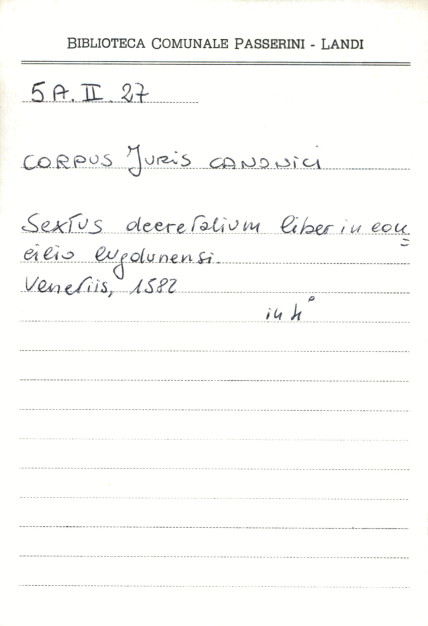 BIBLIOTECA COMUNALE PASSERINI - LANDI
5A. II. 27
CORPUS JURIS CANONICI
Sextus decretalium liber in con=
cilio lugdunensi.
Venetiis, 1582
in 4°